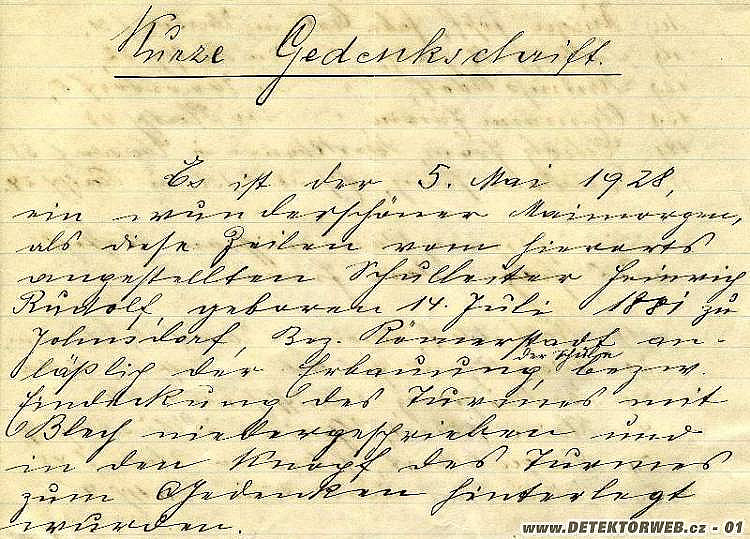 Kurze Gedenkschrift.
Es ist der 5. Mai 1928,
ein wunderschöner Maimorgen,
als diese Zeilen vom hierorts
angestellten Schulleiter Heinrich
Rudolf, geboren 14. Juli 1881 zu
Johnsdorf, Bez. Römerstadt an-
läßlich der Erbauung der Schule bezw.
Eindeckung des Turmes mit
Blech niedergeschrieben und
in den Knopf des Turmes
zum Gedenken hinterlegt
wurden.
www.DETEKTORWEB.cz - 01